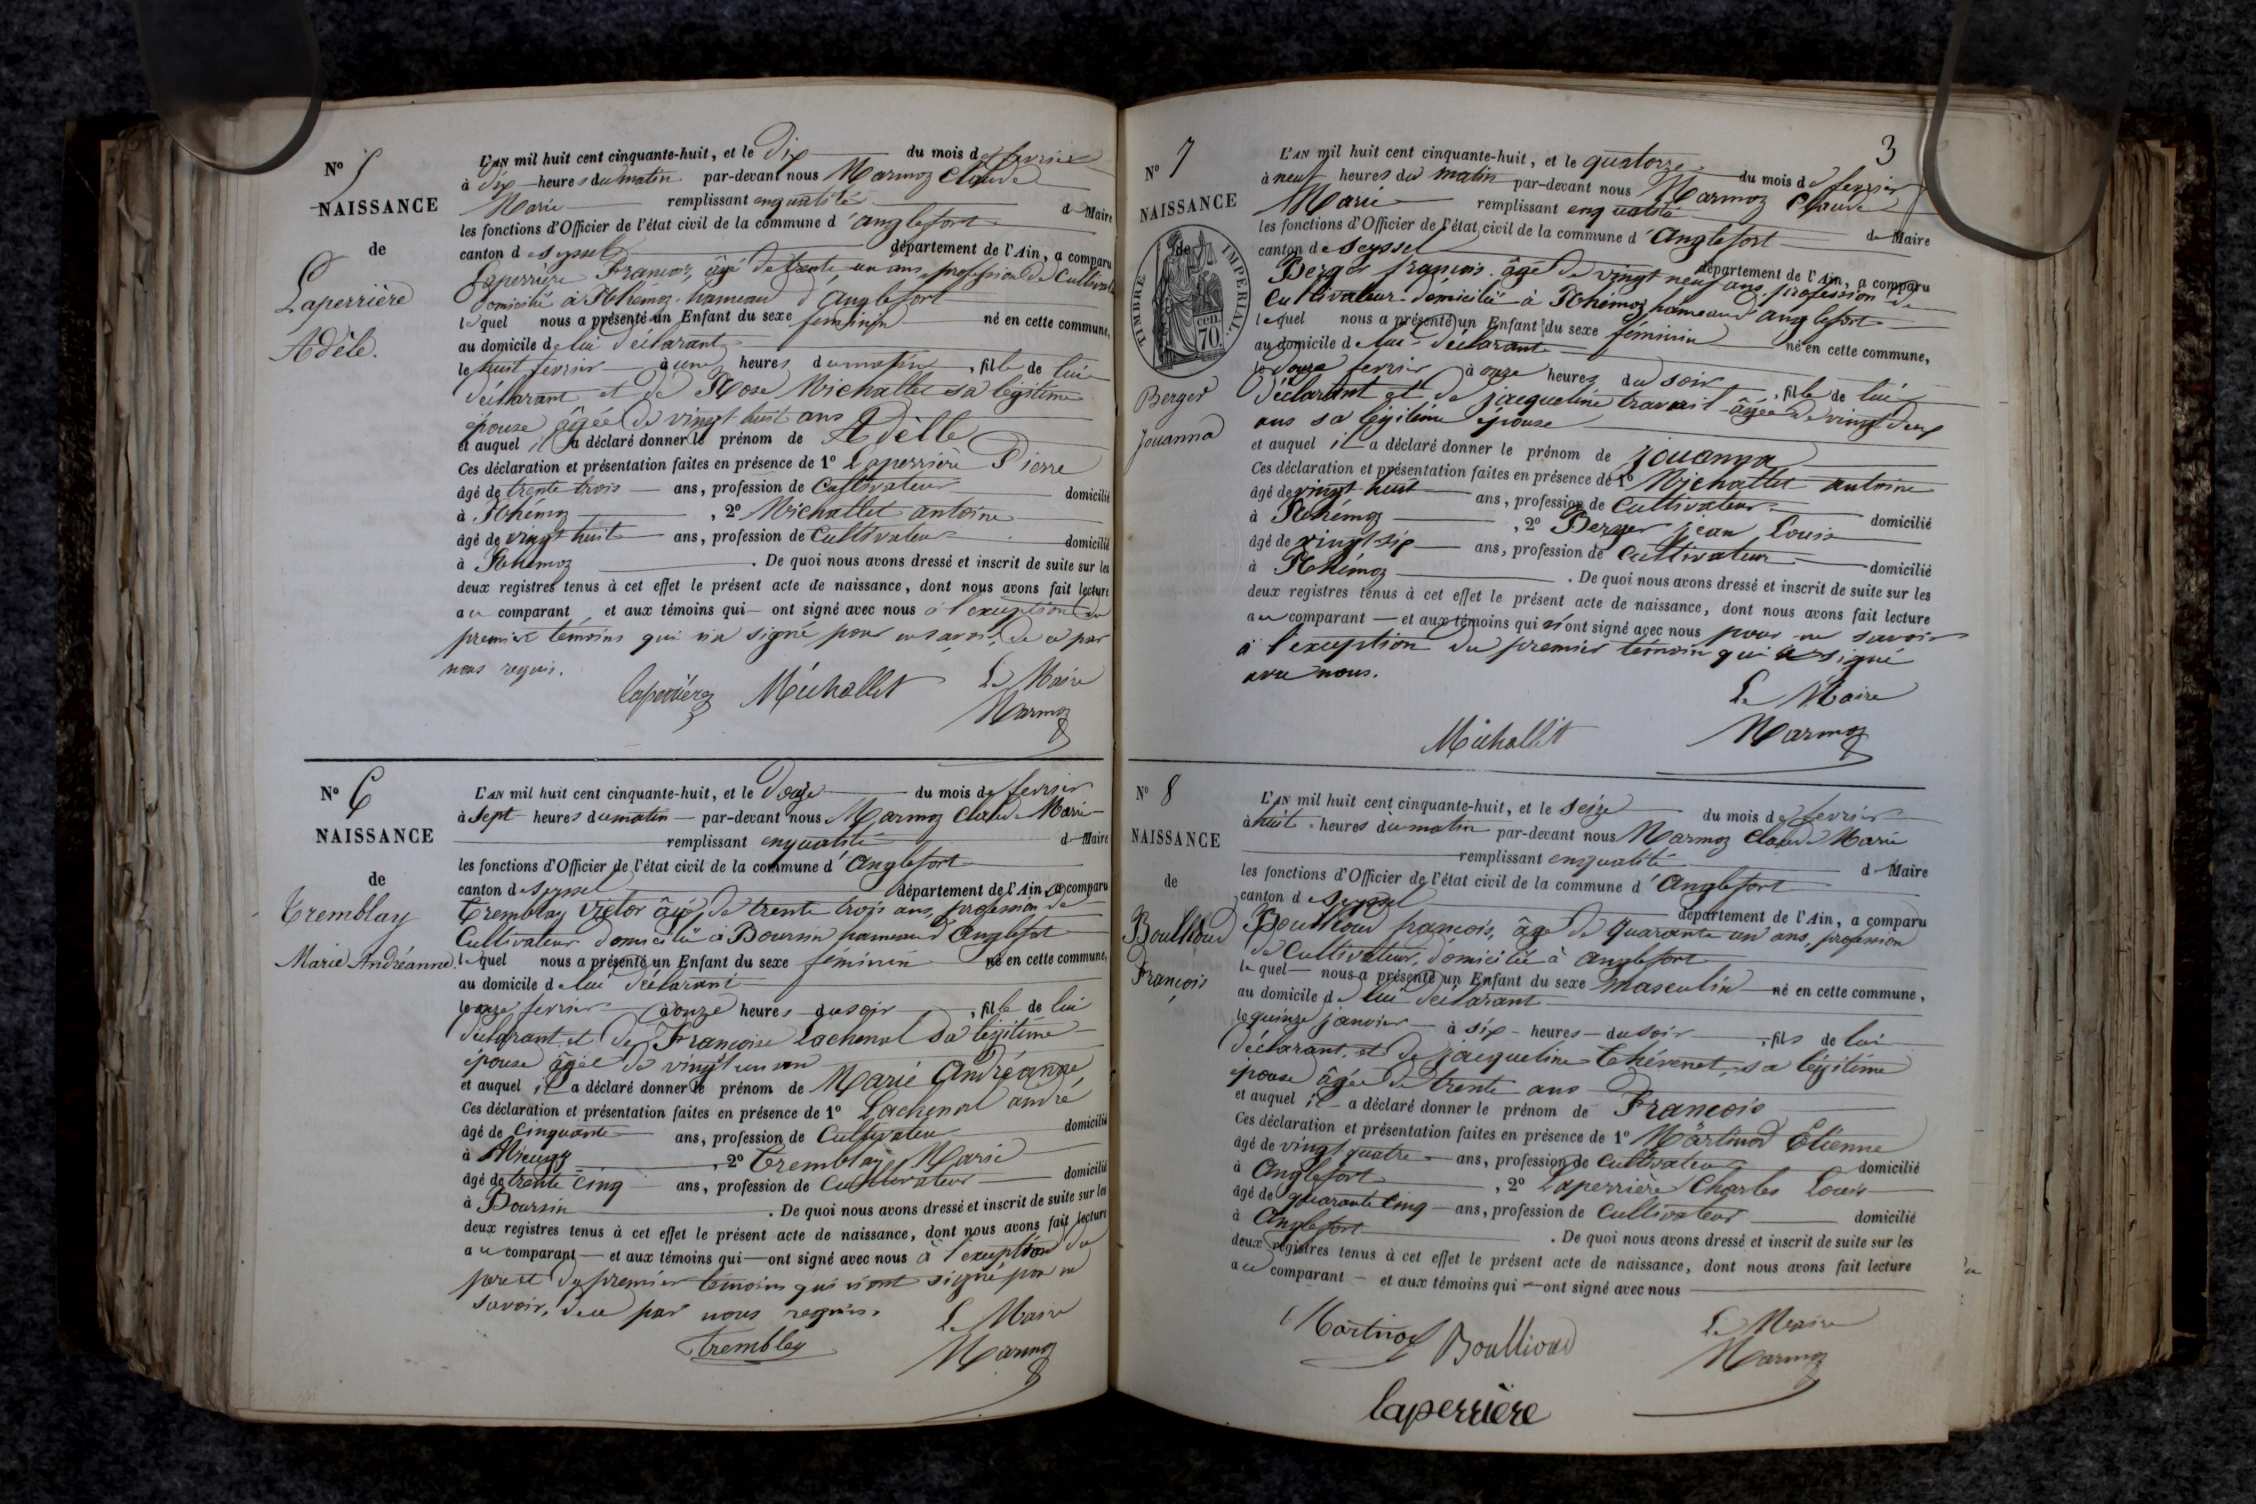 N° 5
NAISSANCE
de
Laperrière
Adèle.
L'AN mil huit cent cinquante-huit, et le dix du mois de fevrier
à dix heures du matin par-devant nous Marmoz Claude
Marie remplissant en qualité de Maire
les fonctions d'Officier de l'état civil de la commune d'anglefort
canton de Seyssel département de l'Ain, a comparu
Laperrière François, âgé de trente un ans, profession de Cultivateur
domicilié à Rhémoz hameau d'anglefort
lequel nous a présenté un Enfant du sexe feminin né en cette commune,
au domicile de lui déclarant
le huit fevrier à une heures du matin, fille de lui
déclarant et de Rose Michallet sa légitime
épouse âgée de vingt huit ans
et auquel il a déclaré donner le prénom de Adèlle
Ces déclaration et présentation faites en présence de 1° Laperrière Pierre
âgé de trente trois ans, profession de Cultivateur domicilié
à Rhémoz, 2° Michallet antoine
âgé de vingt huit ans, profession de Cultivateur domicilié
à Rhémoz. De quoi nous avons dressé et inscrit de suite sur les
deux registres tenus à cet effet le présent acte de naissance, dont nous avons fait lecture
au comparant et aux témoins qui ont signé avec nous à l'exeuption du
premier témoins qui n'a signé pour ne savoir, de ce par
nous requis.
laperrière Michallet Le Maire
Marmoz
N° 6
NAISSANCE
de
Tremblay
Marie Andréanne.
L'AN mil huit cent cinquante-huit, et le Douze du mois de fevrier
à sept heures du matin par-devant nous Marmoz Claude Marie
remplissant en qualité de Maire
les fonctions d'Officier de l'état civil de la commune d'anglefort
canton de Seyssel département de l'Ain, a comparu
Tremblay Victor âgé de trente trois ans, profession de
Cultivateur domicilié à Boursin hameau d'anglefort
lequel nous a présenté un Enfant du sexe féminin né en cette commune,
au domicile de lui déclarant
le onze fevrier à onze heures du soir, fille de lui
déclarant et de Françoise Lachenal sa légitime
épouse âgée de vingt un an
et auquel il a déclaré donner le prénom de Marie Andréanne
Ces déclaration et présentation faites en présence de 1° Lachenal andré
âgé de Cinquante ans, profession de Cultivateur domicilié
à, 2° Tremblay Marie
âgé de trente cinq ans, profession de Cultivateur domicilié
à Boursin. De quoi nous avons dressé et inscrit de suite sur les
deux registres tenus à cet effet le présent acte de naissance, dont nous avons fait lecture
au comparant et aux témoins qui ont signé avec nous à l'exeuption du
père et du premier témoins qui n'ont signé pour ne
savoir, de ce par nous requis.
Tremblay Le Maire
Marmoz
3
N° 7
NAISSANCE
de
TIMBRE IMPERIAL.
cen.
70.
Berger
Jouanna
L'AN mil huit cent cinquante-huit, et le quatorze du mois de fevrier
à neuf heures du matin par-devant nous Marmoz Claude
Marie remplissant en qualité de Maire
les fonctions d'Officier de l'état civil de la commune d'anglefort
canton de Seyssel département de l'Ain, a comparu
Berger françois âgé de vingt neuf ans, profession de
Cultivateur domicilié à Rhémoz hameau d'anglefort
lequel nous a présenté un Enfant du sexe féminin né en cette commune,
au domicile de lui déclarant
le douze fevrier à onze heures du soir, fille de lui
déclarant et de jacqueline travail âgée de vingt deux
ans sa légitime épouse
et auquel il a déclaré donner le prénom de jouanna
Ces déclaration et présentation faites en présence de 1° Michallet antoine
âgé de vingt huit ans, profession de Cultivateur domicilié
à Rhémoz, 2° Berger jean Louis
âgé de vingt six ans, profession de Cultivateur domicilié
à Rhémoz. De quoi nous avons dressé et inscrit de suite sur les
deux registres tenus à cet effet le présent acte de naissance, dont nous avons fait lecture
au comparant et aux témoins qui n'ont signé avec nous pour ne savoir
à l'exeuption du premier témoin qui a signé
avec nous.
Le Maire
Michallet Marmoz
N° 8
NAISSANCE
de
Boullioud
François
L'AN mil huit cent cinquante-huit, et le seize du mois de fevrier
à huit heures du matin par-devant nous Marmoz Claude Marie
remplissant en qualité de Maire
les fonctions d'Officier de l'état civil de la commune d'anglefort
canton de Seyssel département de l'Ain, a comparu
Boullioud françois, âgé de quarante un ans, profession
de Cultivateur, domicilié à anglefort
lequel nous a présenté un Enfant du sexe masculin né en cette commune,
au domicile de lui déclarant
le quinze janvier à six heures du soir, fils de lui
déclarant et de jacqueline thévenet, sa légitime
épouse âgée de trente ans
et auquel il a déclaré donner le prénom de François
Ces déclaration et présentation faites en présence de 1° Martinod Etienne
âgé de vingt quatre ans, profession de Cultivateur domicilié
à Anglefort, 2° Laperrière Charles Louis
âgé de quarante cinq ans, profession de Cultivateur domicilié
à Anglefort. De quoi nous avons dressé et inscrit de suite sur les
deux registres tenus à cet effet le présent acte de naissance, dont nous avons fait lecture
au comparant et aux témoins qui ont signé avec nous
Martinod Boullioud Le Maire
Marmoz
laperrière